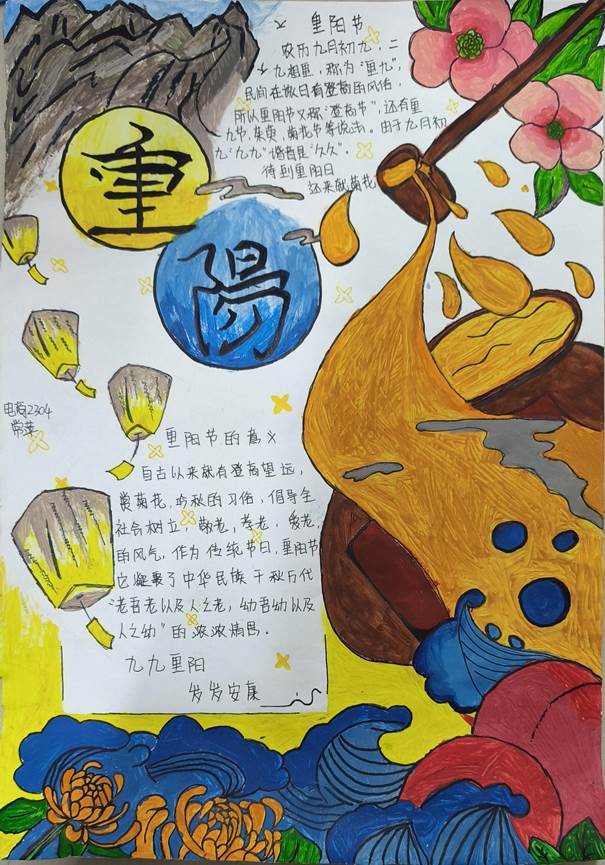 重阳节
农历九月初九,二
九相重,称为"重九",
民间在此日有登高的风俗,
所以重阳节又称"登高节",还有重
九节,茱萸,菊花节等说法。由于九月初
九"九九"谐音是"久久"。
待到重阳日
还来就菊花
重
陽
电商2304
重阳节的意义
自古以来就有登高望远,
赏菊花,吟秋的习俗,倡导全
社会树立,敬老,孝老,爱老,
的风气,作为传统节日,重阳节
它凝聚了中华民族千秋万代
"老吾老以及人之老,幼吾幼以及
人之幼"的浓浓情思.
九九重阳
岁岁安康